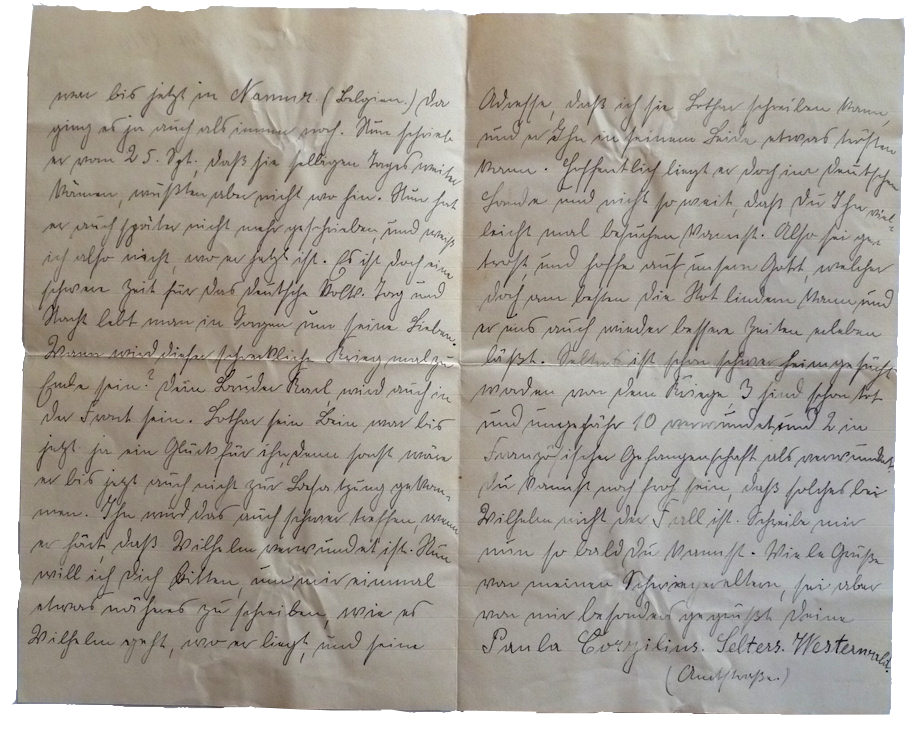 war bis jetzt in Namur. (Belgien.) Da
ging es ja auch als immer noch. Nun schrieb
er vom 25. Spt., daß sie selbigen Tages weiter
kämen, wußten aber nicht wo hin. Nun hat
er auch später nicht mehr geschrieben, und weiß
ich also nicht, wo er jetzt ist. Es ist doch eine
schwere Zeit für das deutsche Volk. Tag und
Nacht lebt man in Sorgen um seine Lieben.
Wann wird dieser schreckliche Krieg mal zu
Ende sein? Dein Bruder Karl wird auch in
der Front sein. Lothar sein Bein war bis
jetzt ja ein Glück für ihn, denn sonst wäre
er bis jetzt auch nicht zur Besatzung gekom-
men. Ihn wird das auch schwer treffen, wenn
er hört, daß Wilhelm verwundet ist. Nun
will ich Dich bitten, um mir einmal
etwas näheres zu schreiben, wie es
Wilhelm geht, wo er liegt, und seine
Adresse, daß ich sie Lothar schreiben kann,
und er Ihn in seinem Leide etwas trösten
kann. Hoffentlich liegt er doch im Deutschen
Lande und nicht so weit, daß Du Ihn viel-
leicht mal besuchen kannst. Also sei ge-
trost und hoffe auf unsern Gott, welcher
doch am besten die Not lindern kann und
er uns auch wieder bessere Zeiten erleben
läßt. Selters ist schon schwer heimgesucht
worden von dem Kriege 3 sind schon tot
und ungefähr 10 verwundet, und 2 in
Französischer Gefangenschaft, als verwundet.
Du kannst noch froh sein, daß solches bei
Wilhelm nicht der Fall ist. Schreibe mir
nun so bald Du kannst. Viele Grüße
von meinen Schwiegereltern, sei aber
von mir besonders gegrüßt Deine
Paula Corzilius. Selters. Westerwald.
(Amtstraße.)